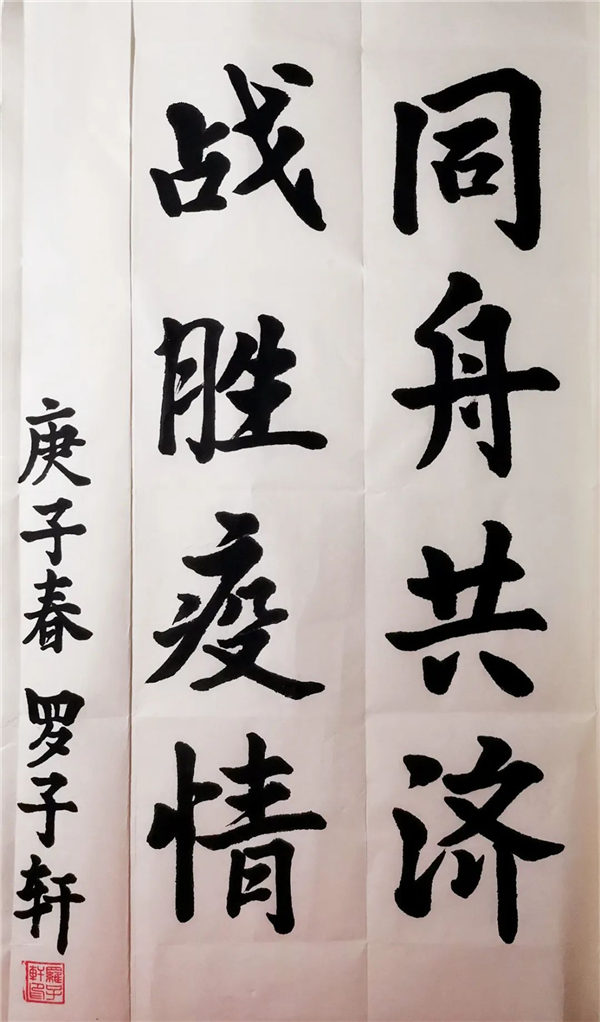 同舟共济
战胜疫情
庚子春 罗子轩
羅子軒印